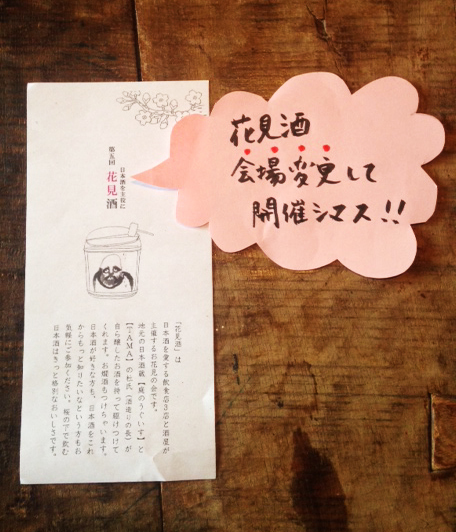 日本酒を主役に
第五回 花見酒
『花見酒』は
日本酒を愛する飲食店3店と酒屋が
主催するお花見の会です。
地元の日本酒蔵【庭のうぐいす】と
の杜氏(酒造りの長)が
自ら醸したお酒を持って駆けつけて
くれます。お燗酒もつけちゃいます。
日本酒が好きな方も、日本酒をこれ
からもっと知りたいなという方もお
気軽にご参加ください。桜の下で飲む
日本酒はきっと格別なおいしさです。
花見酒
会場変更して
開催シマス!!